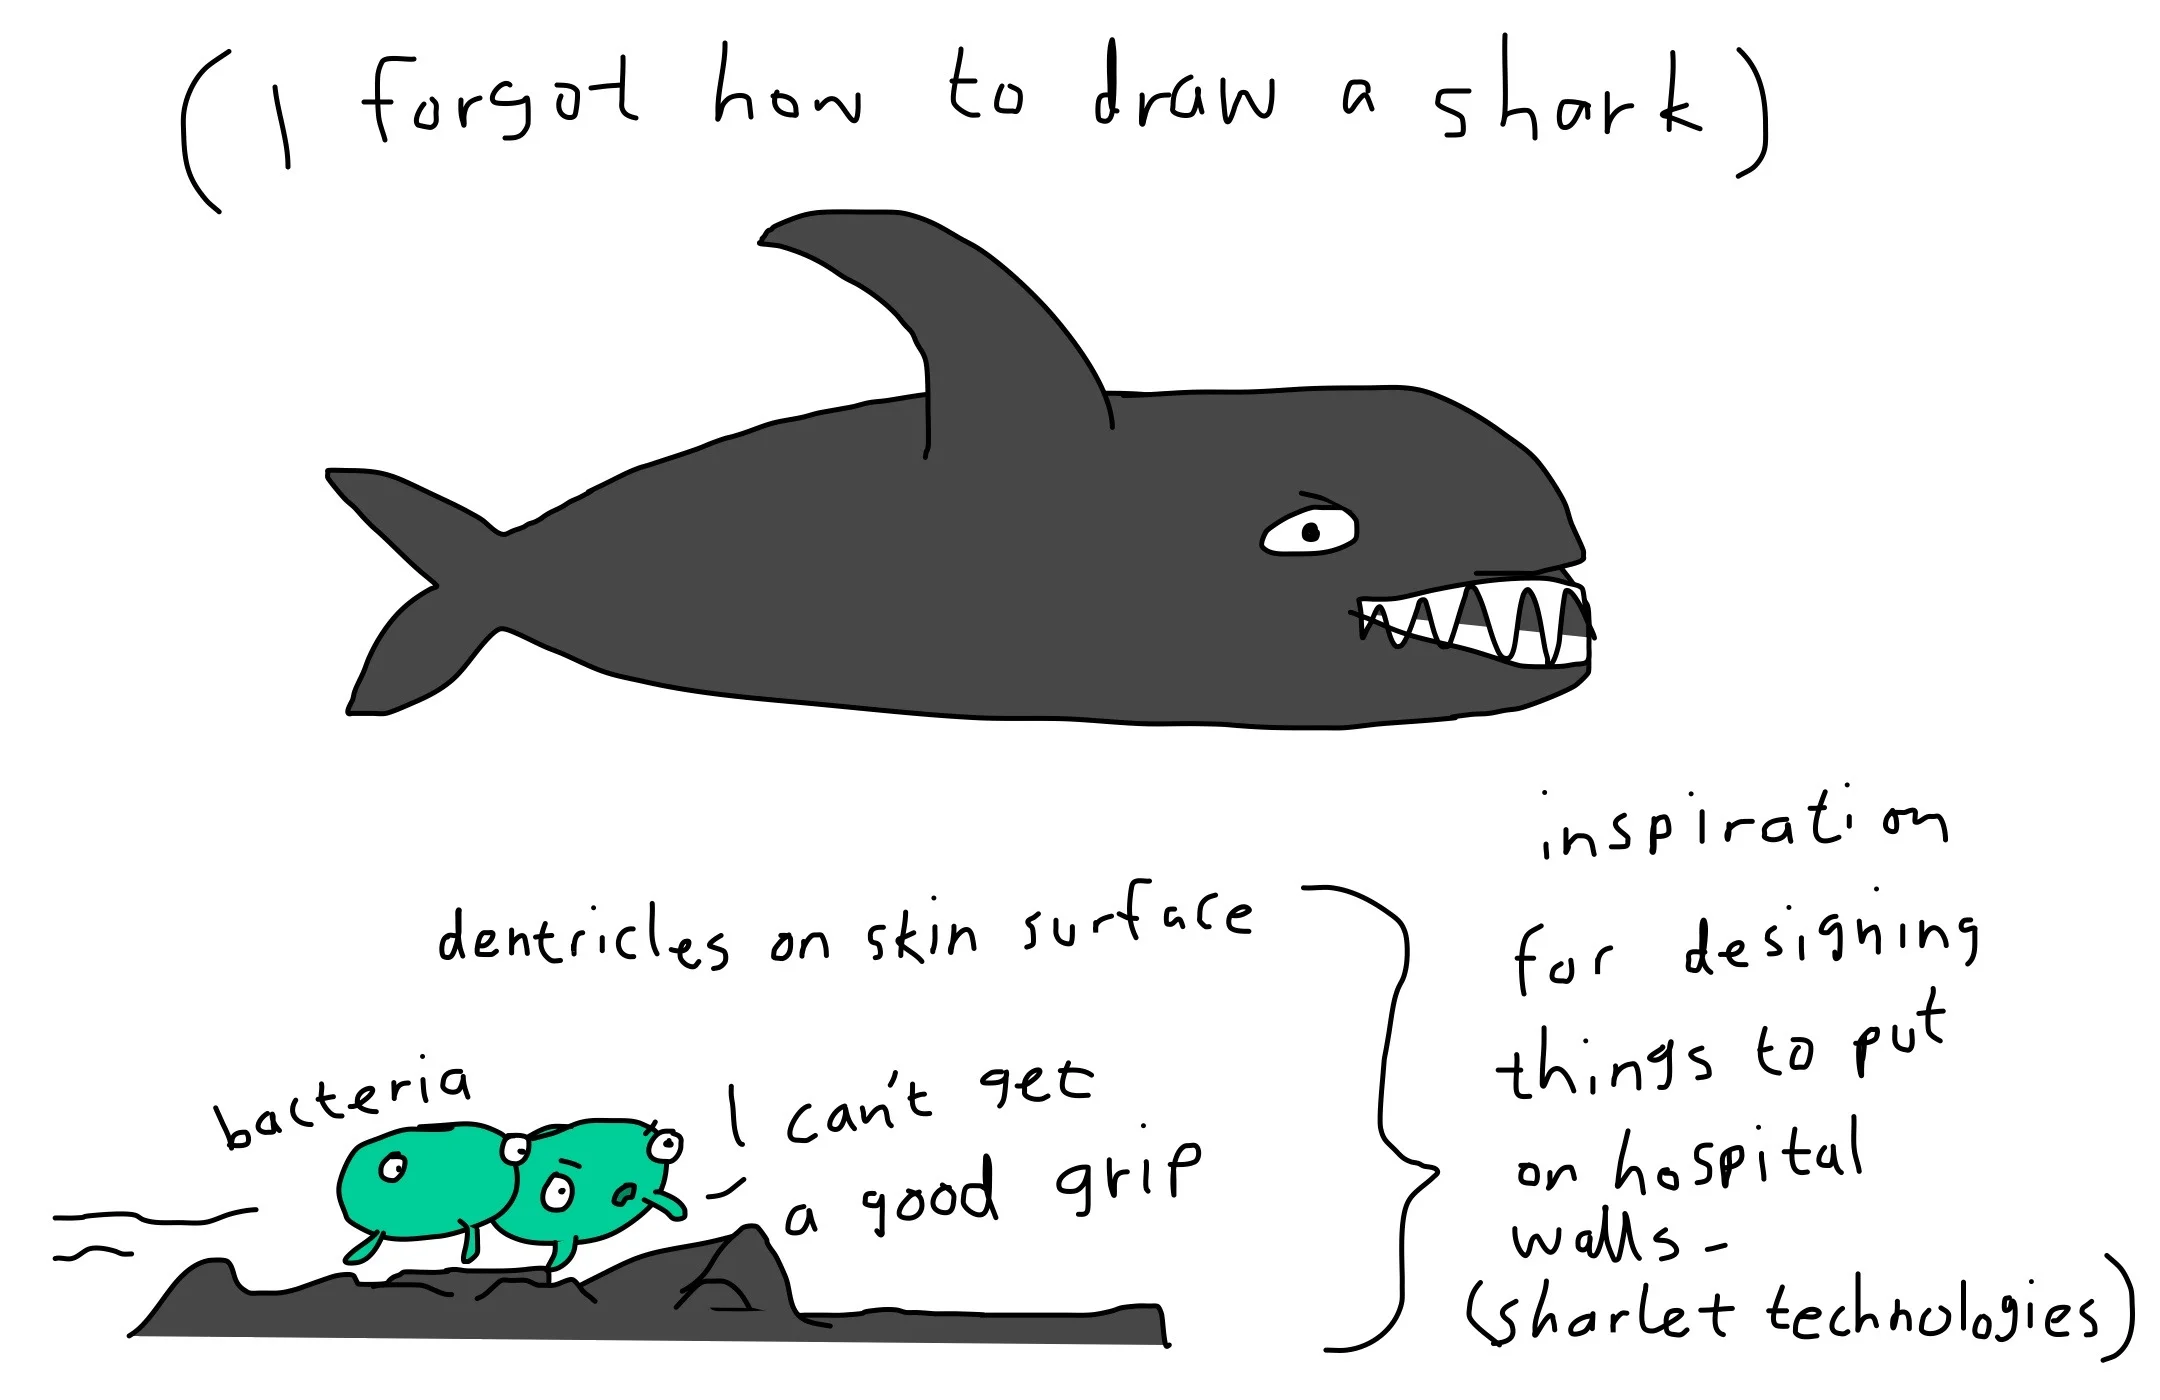 (I forgot how to draw a shark)
dentricles on skin surface
bacteria
I can't get
a good grip
inspiration
for designing
things to put
on hospital
walls -
(sharlet technologies)